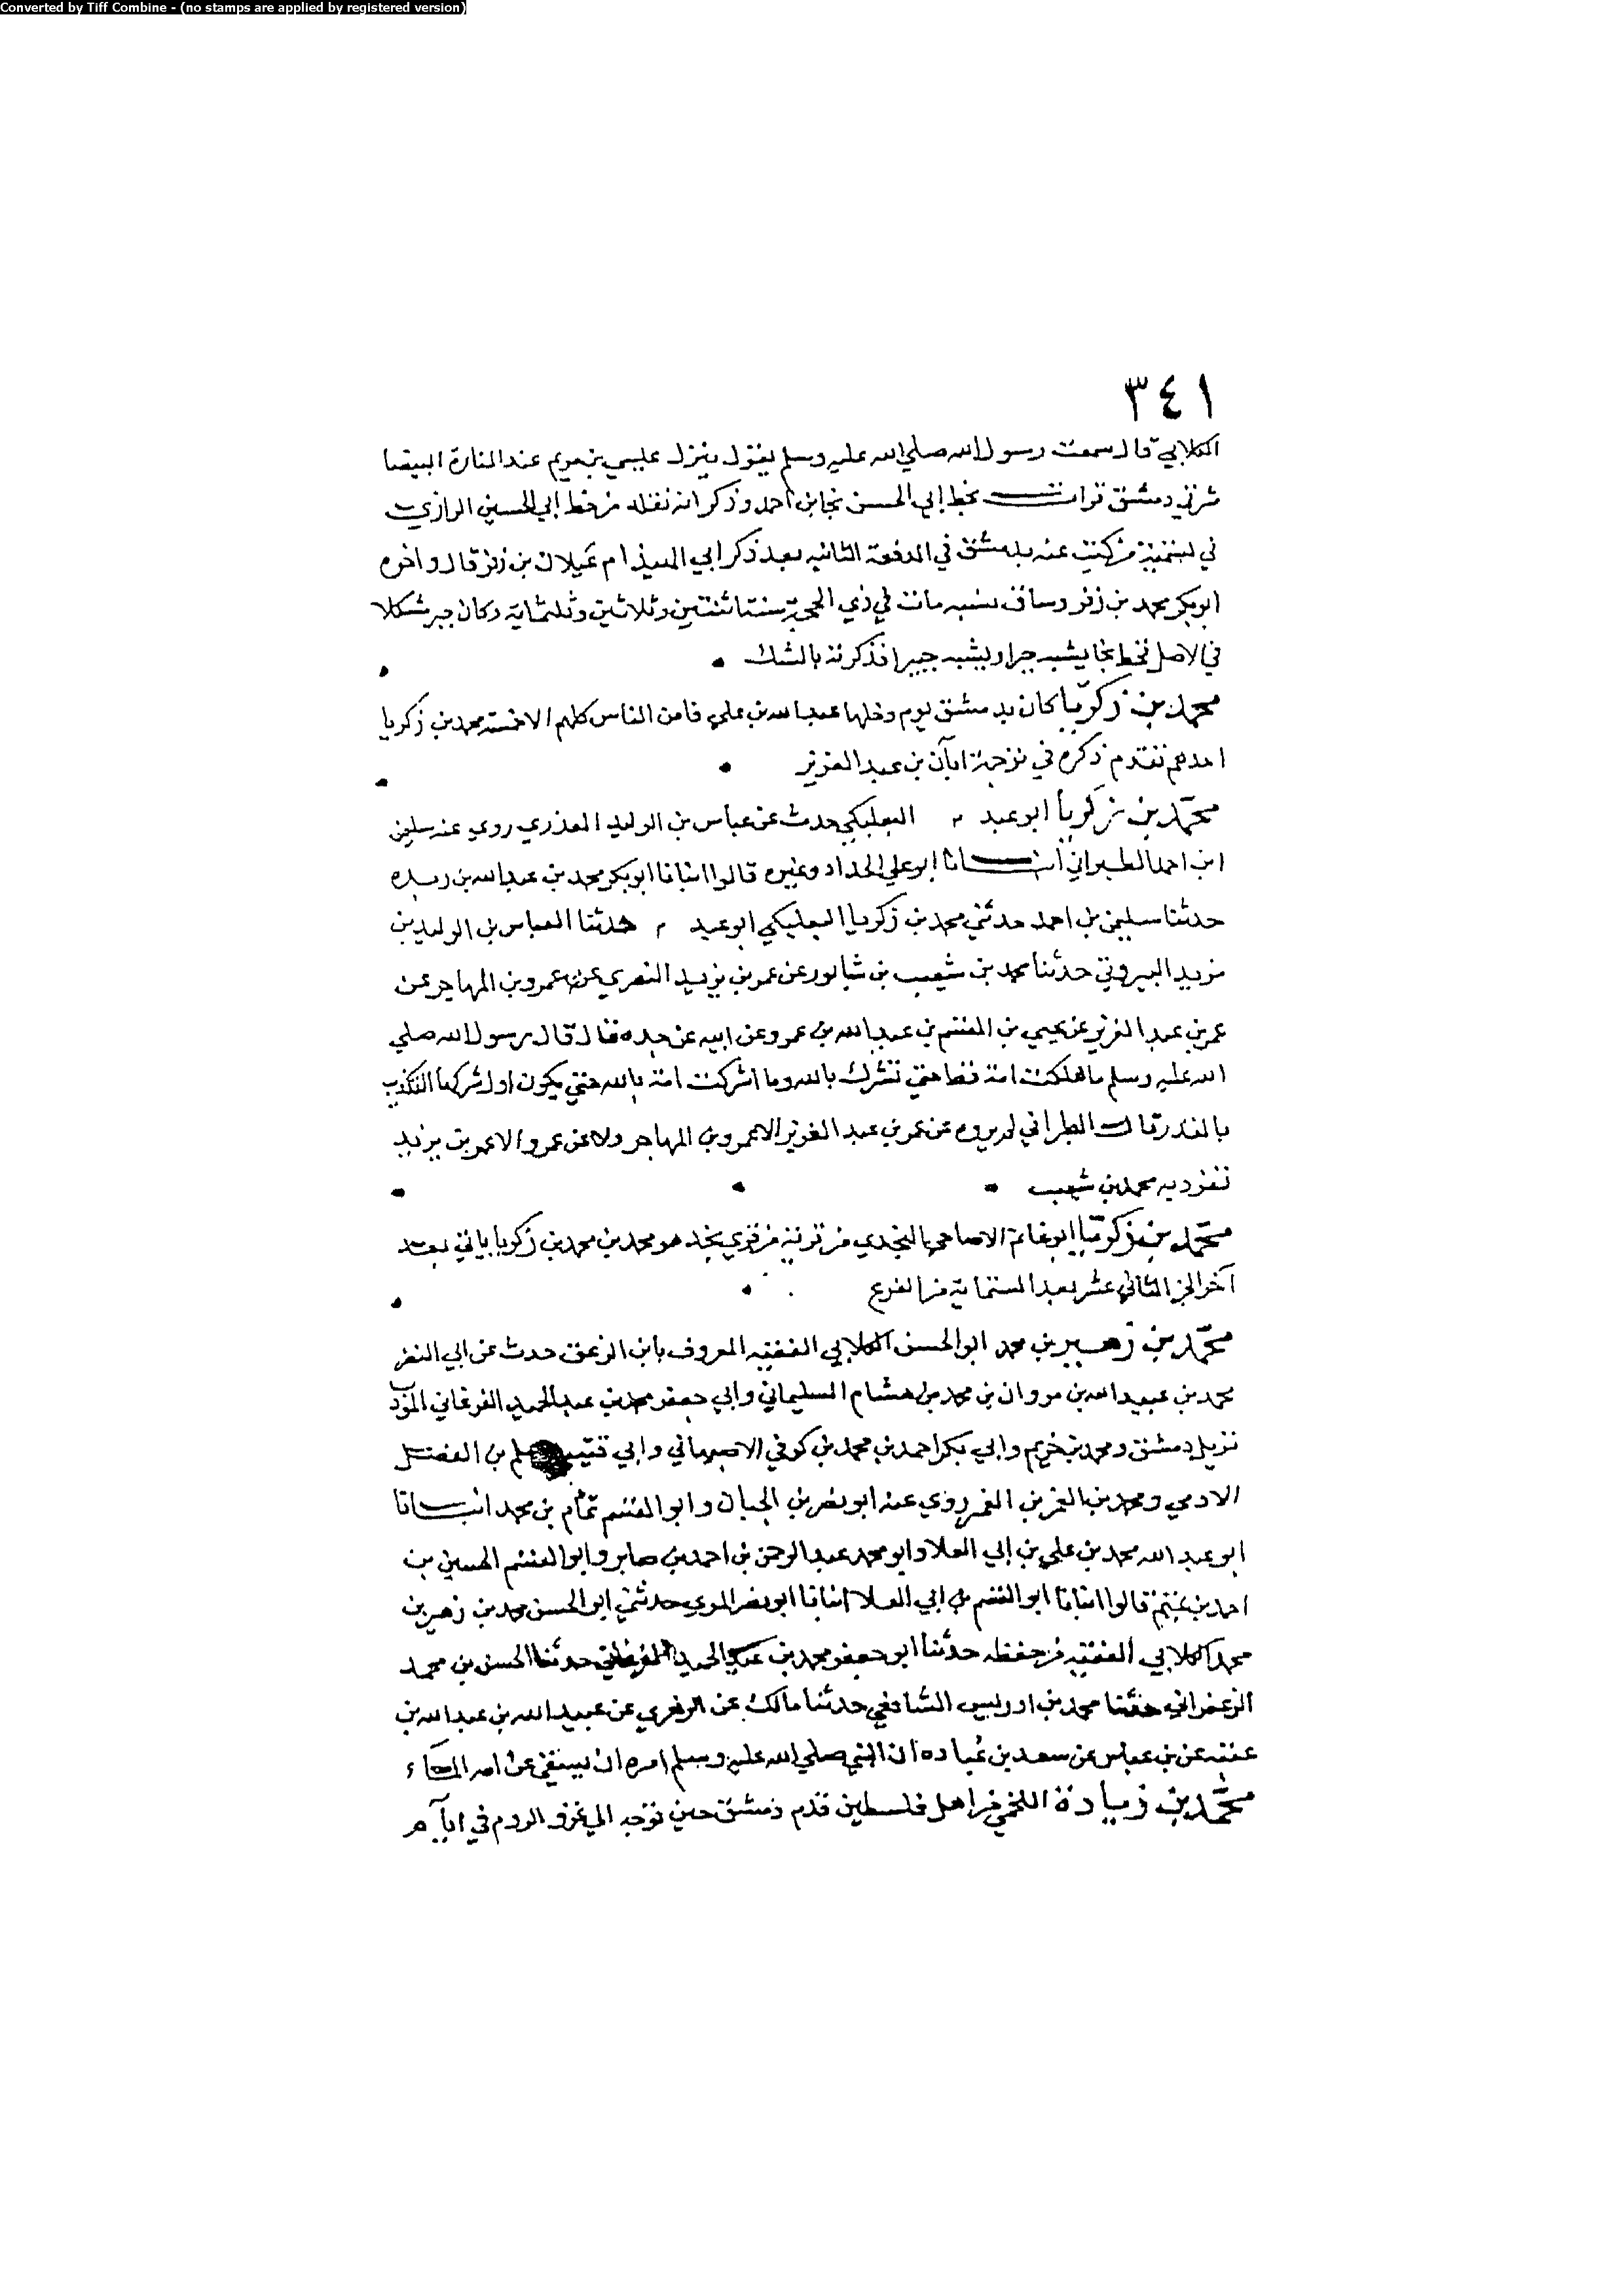 Converted by Tiff Combine - (no stamps are applied by registered version)
٣٤١
الكلابي قال سمعت رسول الله صلي الله عليه وسلم يقول ينزل عيسي بن مريم عند المنارة البيضا
شرقي دمشق قرات بخط ابي الحسن نجا بن احمد وذكر انه نقله من خط ابي الحسين الرازي
في تسمية من كتب عنه بدمشق في الدفعة الثانيه بعد ذكر ابي الهيذام غيلان بن زفر قال واخوه
ابو بكر محمد بن زفر وساق نسبه مات في ذي الحجة سنة اثنتين وثلاثين وثلثماية وكان جبر مشكلا
في الاصل بخط نجا يشبه جبرا ويشبه جبيرا فذكرته بالشك
محمد بن زكريا كان بدمشق يوم دخلها عبد الله بن علي فامن الناس كلهم الا خمسة محمد بن زكريا
احدهم تقدم ذكره في ترجمة ابان بن عبد العزيز
محمد بن زكريا ابو عبد م البعلبكي حدث عن عباس بن الوليد العذري روي عنه سليمن
ابن احمد الطبراني انبانا ابو علي الحداد وغيره قالوا انبانا ابو بكر محمد بن عبد الله بن ريده
حدثنا سليمن بن احمد حدثني محمد بن زكريا البعلبكي ابو عبد م حدثنا العباس بن الوليد بن
مزيد البيروتي حدثنا محمد بن شعيب بن شابور عن عمر بن يزيد النصري عن عمرو بن المهاجر عن
عمر بن عبد العزيز عن يحيي بن القسم بن عبد الله بن عمرو عن ابيه عن جده قال قال رسول الله صلي
الله عليه وسلم ما هلكت امة قط حتي تشرك بالله وما اشركت امة بالله حتي يكون اول شركها التكذيب
بالقدر قال الطبراني لم يروه عن عمر بن عبد العزيز الا عمرو بن المهاجر ولا عن عمرو الا عمر بن يزيد
تفرد به محمد بن شعيب
محمد بن زكريا ابو غانم النجدي من قرية من قري نجد هو محمد بن محمد بن زكريا ياتي بعد
آخر الجز الثاني عشر بعد الستماية من الفرع
محمد بن زهير بن محمد ابو الحسن الكلابي الفقيه المعروف بابن الزعق حدث عن ابي النضر
محمد بن عبيد الله بن مروان بن محمد بن هشام السليماني وابي جعفر محمد بن عبد الحميد الفرغاني المؤدب
نزيل دمشق ومحمد بن خريم وابي بكر احمد بن محمد بن كوفي الاصبهاني وابي قتيبه سلم بن الفضل
الادمي ومحمد بن العمر بن الغمر روي عنه ابو نصر بن الجبان وابو القسم تمام بن محمد انبانا
ابو عبد الله محمد بن علي بن ابي العلا وابو محمد عبد الرحمن بن احمد بن صابر وابو القسم الحسين بن
احمد بن تميم قالوا انبانا ابو القسم بن ابي العلا انبانا ابو نصر المري حدثني ابو الحسن محمد بن زهير بن
محمد الكلابي الفقيه من حفظه حدثنا ابو جعفر محمد بن عبد الحميد الفرغاني حدثنا الحسن بن محمد
الزعفراني حدثنا محمد بن ادريس الشافعي حدثنا مالك عن الزهري عن عبيد الله بن عبد الله بن
عتبه عن بن عباس عن سعد بن عباده ان النبي صلي الله عليه وسلم امره ان يسقي عن امه الماء
محمد بن زيادة اللخمي من اهل فلسطين قدم دمشق حين توجه الي غزو الروم في ايام